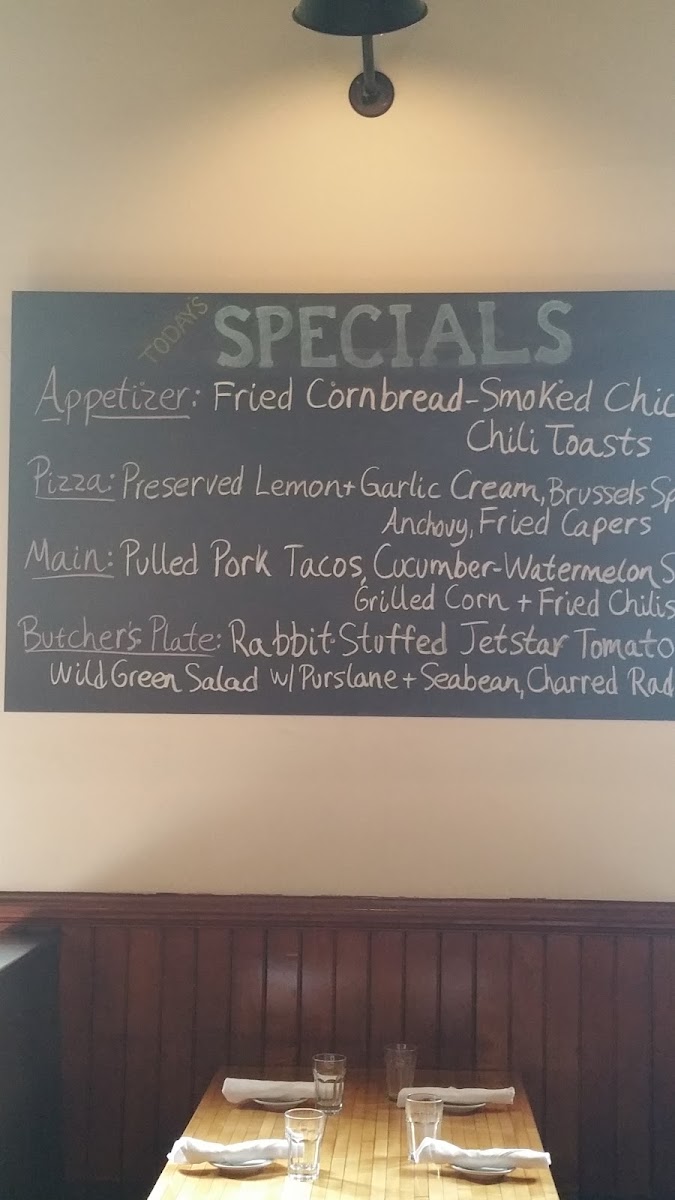 TODAY'S SPECIALS
Appetizer: Fried Cornbread-Smoked Chic
Chili Toasts
Pizza: Preserved Lemon + Garlic Cream, Brussels Sp
Anchovy, Fried Capers
Main: Pulled Pork Tacos, Cucumber-Watermelon S
Grilled Corn + Fried Chilis
Butcher's Plate: Rabbit-Stuffed Jetstar Tomato
Wild Green Salad w/ Purslane + Seabean, Charred Rad